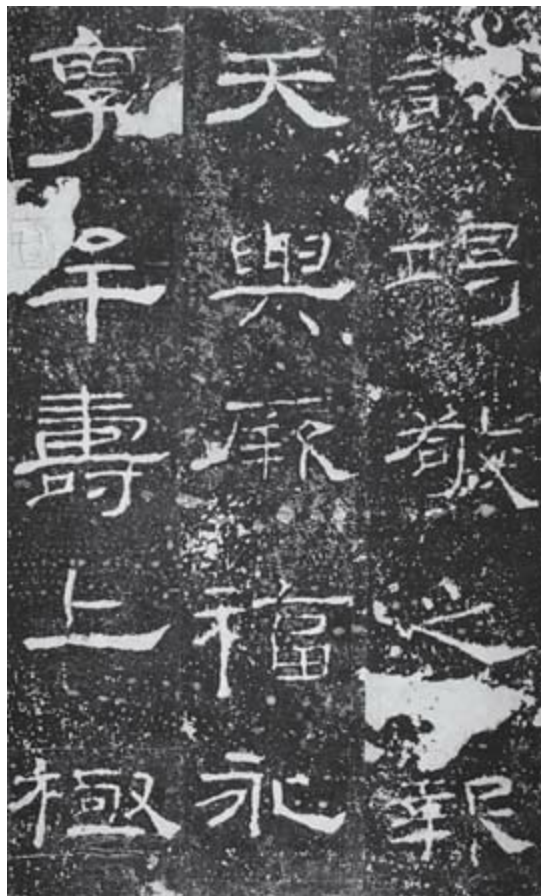 誠竭敬之報
天與厥福永
享牟壽上極